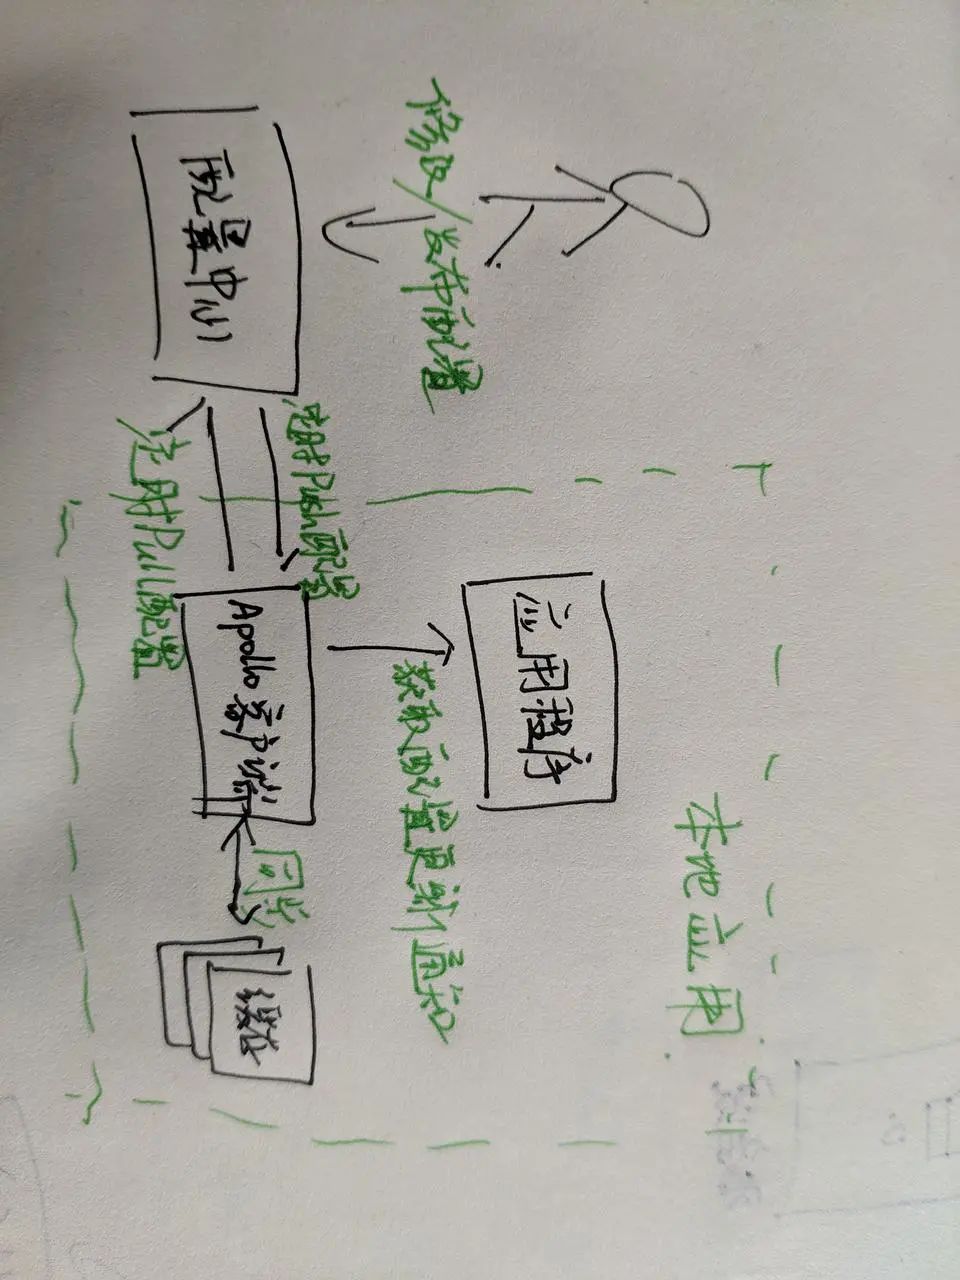 修改/发布配置
配置中心
定时Push配置
定时Pull配置
应用程序
Apollo客户端
获取配置更新通知
本地应用
同步
缓存